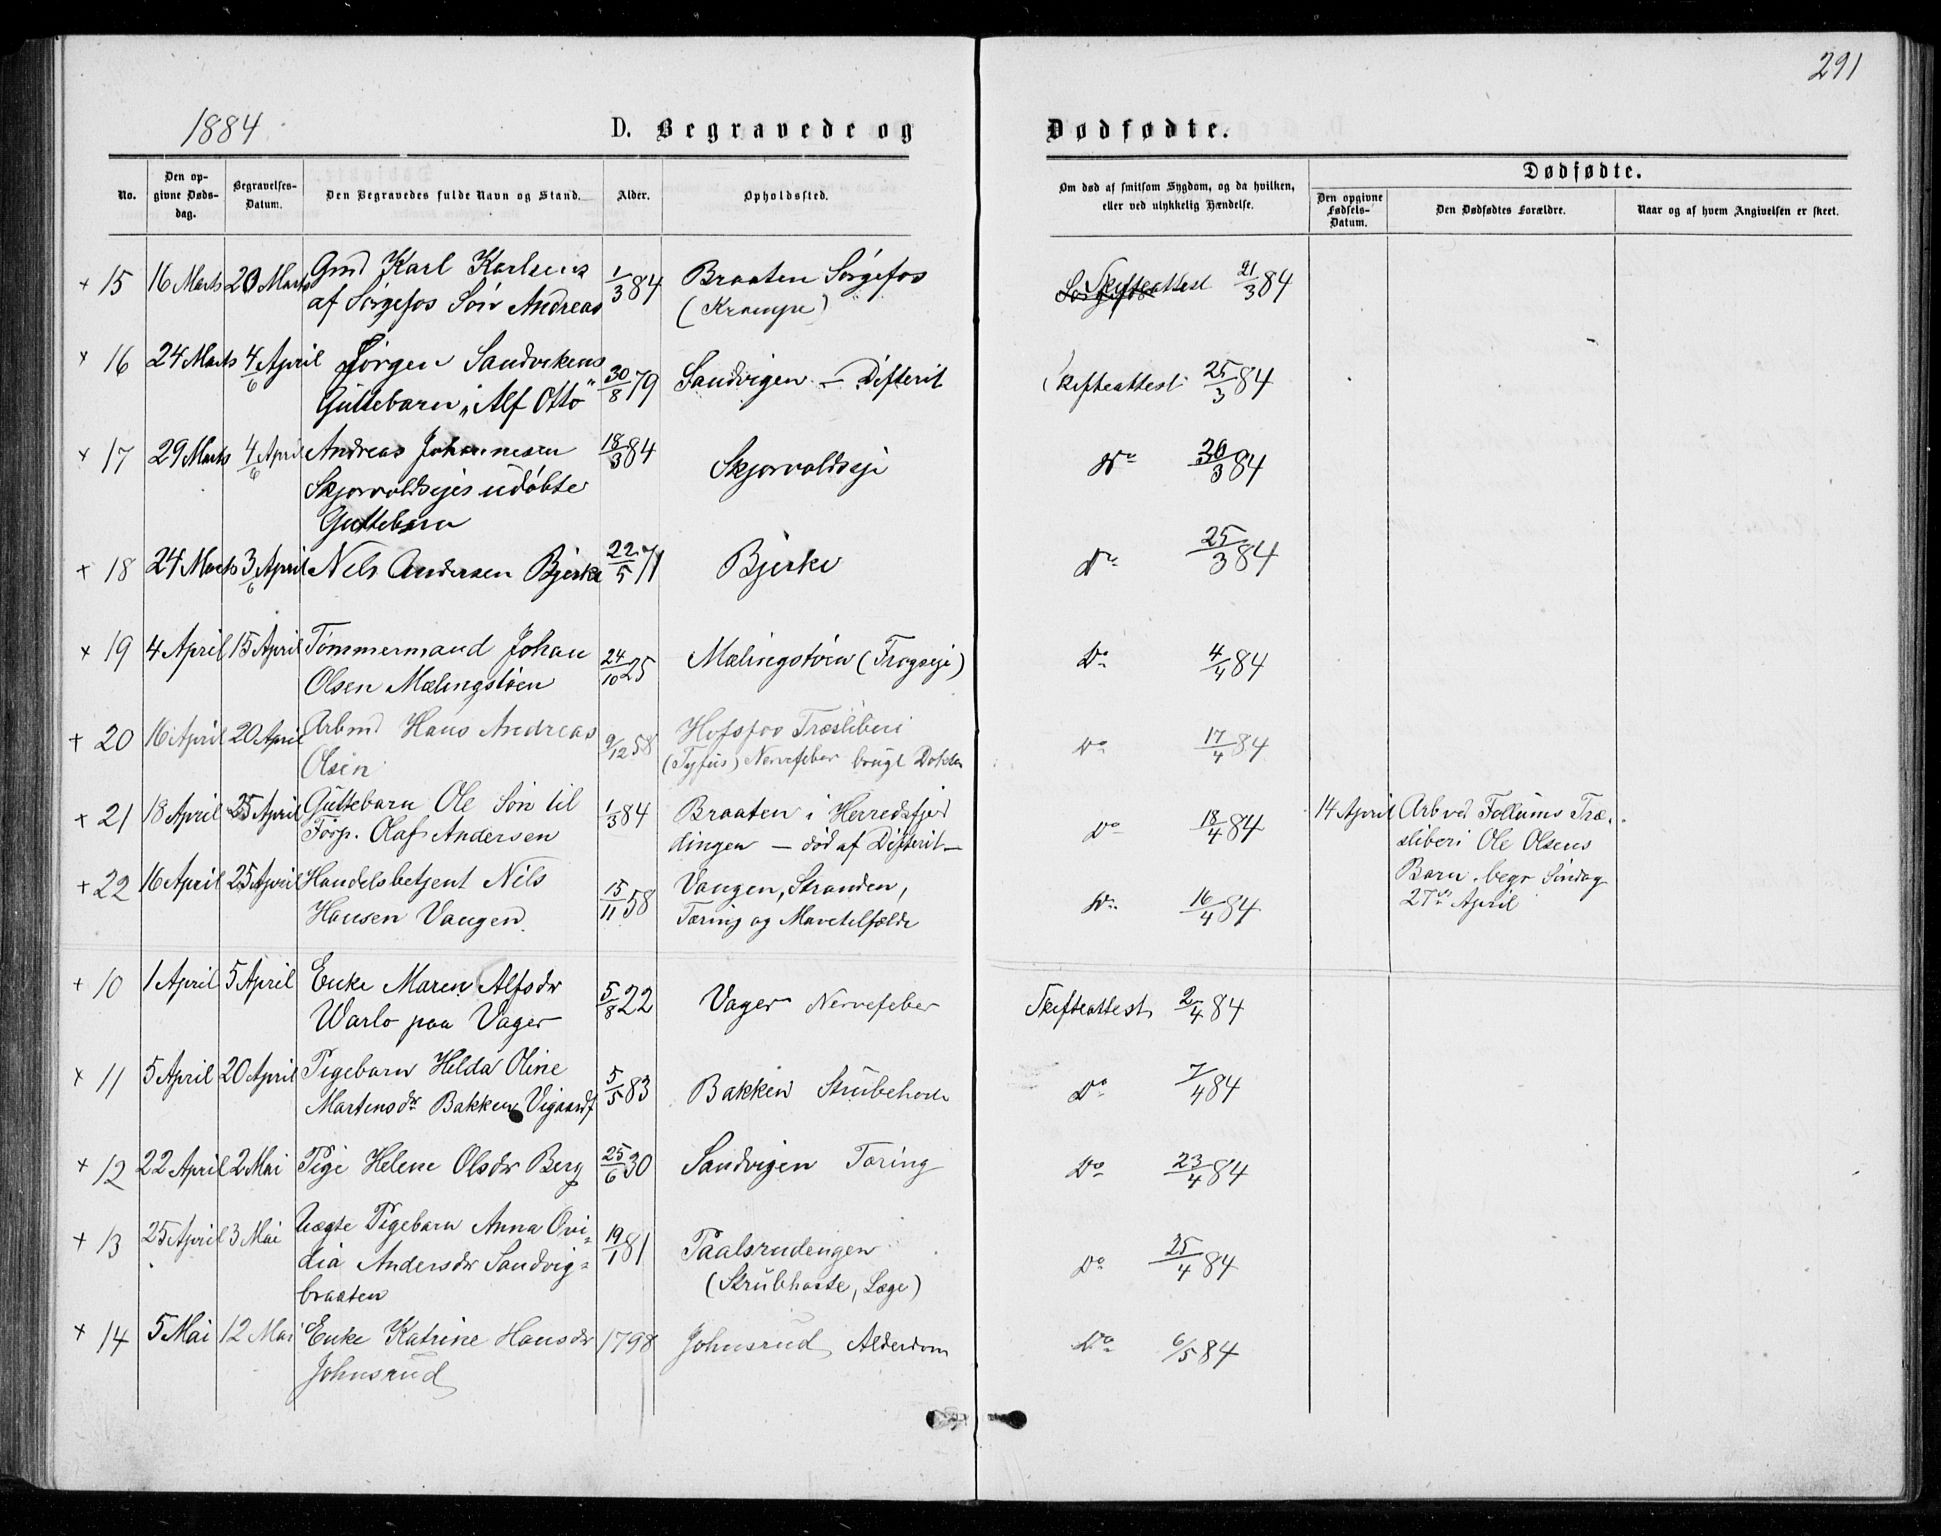 291
1884
D. Begravede og Dødfødte.
No.
Den op-
givne Døds-
dag.
Begravelses-
Datum.
Den Begravedes fulde Navn og Stand.
Alder.
Opholdssted.
Om død af smitsom Sygdom, og da hvilken,
eller ved ulykkelig Hændelse.
Dødfødte.
Den opgivne
Fødsels-
Datum.
Den Dødfødtes Forældre.
Naar og af hvem Angivelsen er skeet.
+ 15 16 Marts 20 Marts Gmd Karl Karlsens 1/3 84 Braaten Sørgefos Skifteattest 21/3 84
af Sørgefos Søn Andreas (Krampe)
+ 16 24 Marts 4/6 April Jørgen Sandvikens 30/8 79 Sandvigen - Difterit Skifteattest 25/3 84
Guttebarn "Alf Otto"
+ 17 29 Marts 4/6 April Andreas Johannesen 18/3 84 Skjorvoldseje Do 30/3 84
Skjorvoldsejes udøbte
Guttebarn
+ 18 24 Marts 3/6 April Nels Andersen Bjerke 22/5 71 Bjerke Do 25/3 84
+ 19 4 April 15 April Tømmermand Johan 24/10 25 Mælingstøen (Frogseje) Do 4/4 84
Olsen Mælingstøen
+ 20 16 April 20 April Arbmd Hans Andreas 9/12 58 Hofsfos Træsliberi Do 17/4 84
Olsen (Tyfus) Nervefeber brugt Doktor
+ 21 18 April 25 April Guttebarn Ole Søn til 1/3 84 Braaten i Herredsfjer Do 18/4 84 14 April Arb ved Follums Træ-
Forp. Olaf Andersen dingen - død af Difterit - sliberi Ole Olsens
Barn. begr Søndag
27de April
+ 22 16 April 25 April Handelsbetjent Nils 15/11 58 Vangen, Stranden, Do 16/4 84
Hansen Vangen. Tæring og Mavetilfælde
+ 10 1 April 5 April Enke Maren Alfsdr 5/8 22 Vager Nervefeber Skifteattest 2/4 84
Warlo paa Vager
+ 11 5 April 20 April Pigebarn Hilda Oline 5/5 83 Bakken Strubehoste Do 7/4 84
Martensdr Bakken
+ 12 22 April 2 Mai Pige Helene Olsdr Berg 25/6 30 Sandvigen Tæring Do 23/4 84
+ 13 25 April 3 Mai Uægte Pigebarn Anna Ovi- 19/1 81 Paalsrudengen Do 25/4 84
dia Andersdr Sandvig- (Strubhoste, Læge)
braaten
+ 14 5 Mai 12 Mai Enke Katrine Hansdr 1798 Johnsrud Alderdom Do 6/5 84
Johnsrud